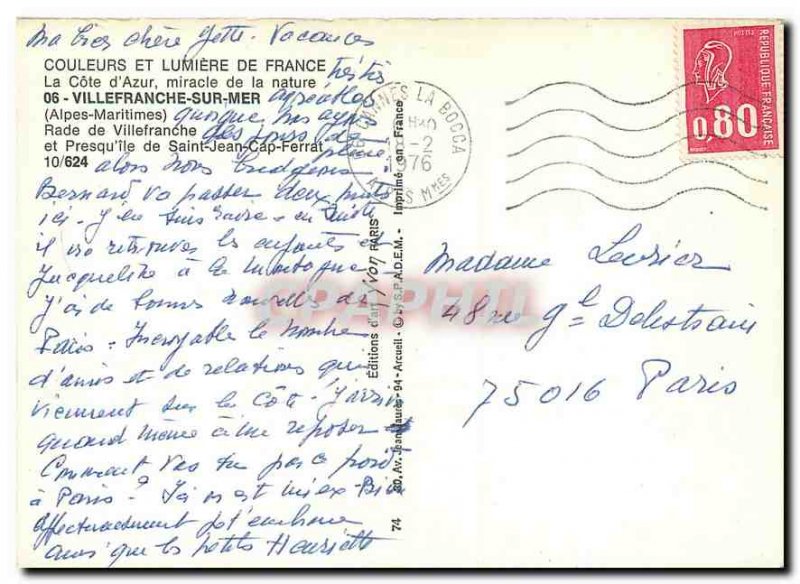 Ma bien chère Yette - Vacances
COULEURS ET LUMIÈRE DE FRANCE
La Côte d'Azur, miracle de la nature très
06 - VILLEFRANCHE-SUR-MER agréables
(Alpes-Maritimes) quoique nous ayons
Rade de Villefranche des jours de
et Presqu'île de Saint-Jean-Cap-Ferrat pluie
10/624
alors nous
Bernard va passer deux nuits
ici - J'en suis ravie - ensuite
il va retrouver les enfants et
Jacqueline à la montagne
J'ai de bonnes nouvelles de
Paris - Incroyable le nombre
d'amis et de relations qui
viennent sur la Côte - J'arrive
quand même à me reposer
Comment vas tu pas froid
à Paris? Ici on est mieux - Bien
affectueusement je t'embrasse
ainsi que la petite Henriette
Editions d'art Yvon PARIS
74 80, Av. Jean-Jaurès - 94 - Arcueil - © by S.P.A.D.E.M. - Imprimé en France
CANNES LA BOCCA
-2
1976
ALPES Mmes
REPUBLIQUE FRANÇAISE
0,80
CPAPHIL
Madame
48 rue Gl Delestrain
75016 Paris